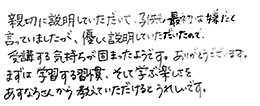 親切に説明していただいて、子供も最初は嫌だと
言っていましたが、優しく説明していただいたので、
受講する気持ちが固まったようです。ありがとうございます。
まずは学習する習慣、そして学ぶ楽しさを
あすなろさんから教えていただけるとうれしいです。